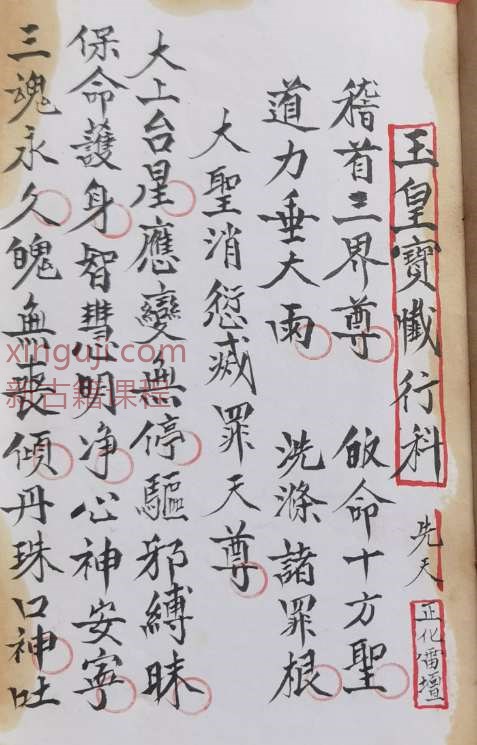 玉皇寶懴行科 先天 正化雷壇
稽首三界尊 皈命十方聖
道力垂大雨 洗滌諸罪根
大聖消愆滅罪天尊
大上台星應變無停驅邪縛昧
保命護身智慧明净心神安寧
三魂永久魄無喪傾丹珠口神吐
xinguji.com
新古籍课程